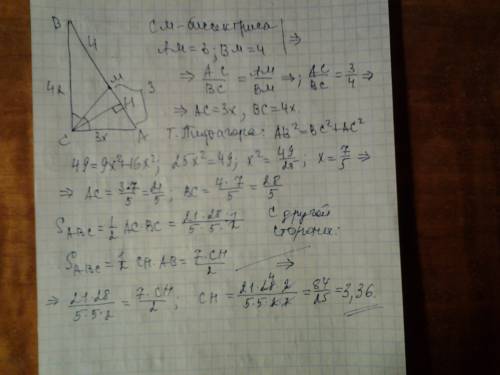 B
4
4x
M
3
H
C
3x
A
CM-биссектриса
AM=3; BM=4 | ⇒
⇒ AC/BC = AM/BM ⇒; AC/BC = 3/4 ⇒
⇒ AC=3x, BC=4x
Т. Пифагора: AB²=BC²+AC²
49=9x²+16x²; 25x²=49, x²=49/25; x=7/5 ⇒
⇒ AC=3·7/5=21/5, BC=4·7/5=28/5
S_ABC=1/2 AC·BC=21·28·1/5·5·2 С другой
стороны:
S_ABC=1/2 CH·AB=7·CH/2 ⇒
⇒ 21·28/5·5·2=7·CH/2; CH=21·28·2/5·5·2·7=84/25=3,36